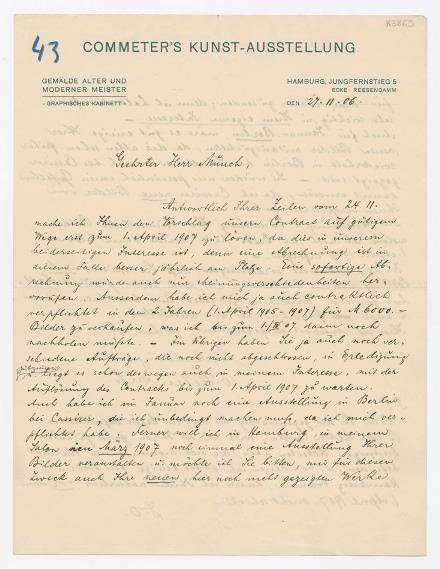 K3863
43
COMMETER'S KUNST-AUSSTELLUNG
GEMÄLDE ALTER UND
MODERNER MEISTER
- GRAPHISCHES KABINETT -
HAMBURG, JUNGFERNSTIEG 5
ECKE REESENDAMM
DEN 27.-11-06.
Geehrter Herr Munch,
Antwortlich Ihrer Zeilen vom 24.11.
mache ich Ihnen den Vorschlag unsere Contract auf gütigem
Wege erst zum 1. April 1907 zu lösen, da dies in unserem
beiderseitigen Interesse ist, denn eine Abrechnung ist in
diesem Falle besser jährlich am Platze. Eine sofortige Ab-
rechnung würde auch nur Meinungsverschiedenheiten her-
vorrufen. Ausserdem habe ich mich ja auch contraktlich
verpflichtet in den 2 Jahren (1. April 1905-1907) für M 6000.-
Bilder zu verkaufen, was ich bis zum 1/IV 07 dann noch
nachholen müsste. - Im Übrigen haben Sie ja auch noch ver-
schiedene Aufträge, die noch nicht abgeschlossen, in Erledigung
liegt es schon deswegen auch in meinem Interesse, mit der
Auflösung des Contracts bis zum 1. April 1907 zu warten.
Auch habe ich im Januar noch eine Ausstellung in Berlin
bei Cassirer, die ich unbedingt machen muss, da ich mich ver-
pflichtet habe. Ferner will ich in Hamburg, in meinem
Salon im März 1907 noch einmal eine Ausstellung Ihrer
Bilder veranstalten u. möchte ich Sie bitten, mir für diesen
Zweck auch Ihre neuen, hier noch nicht gezeigten Werke